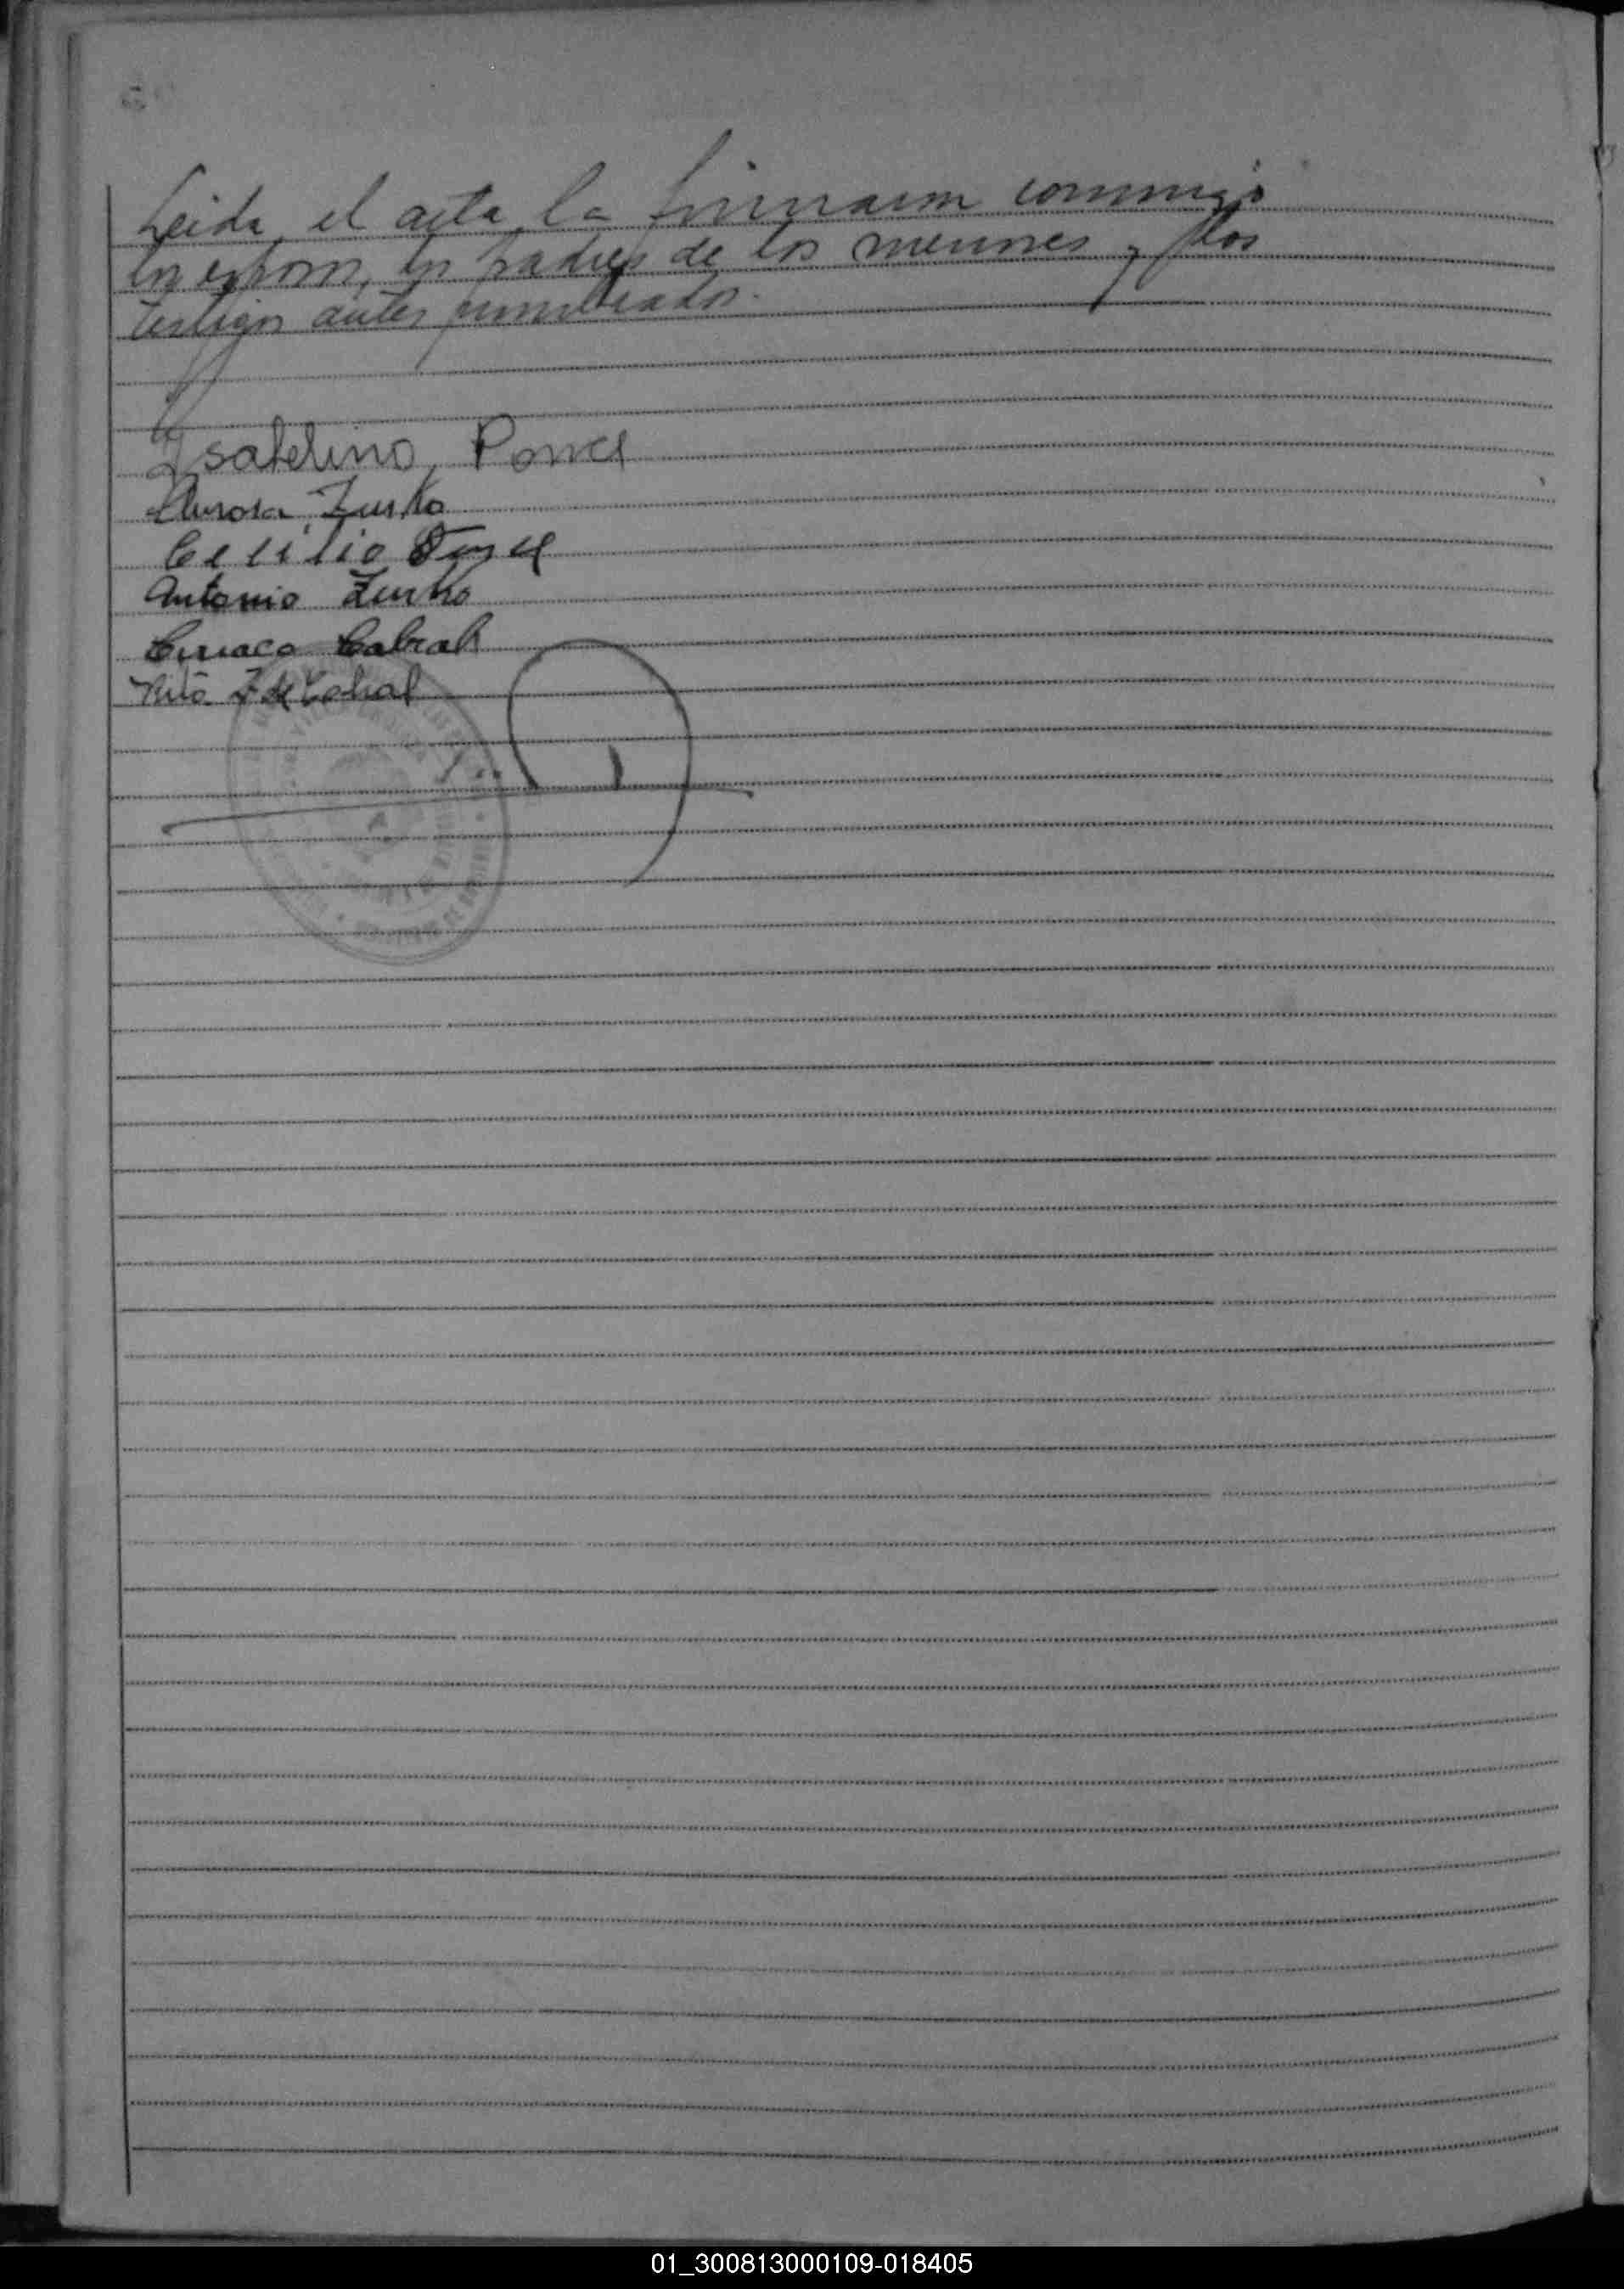 Leida el acta la firmaron conmigo
los esposos, los padres de los menores y los
testigos antes nombrados.
Isabelino Ponce
Aurora
Cecilio
Antonio
Ciriaco Cabral
Rita Z de Cabral
01_300813000109-018405